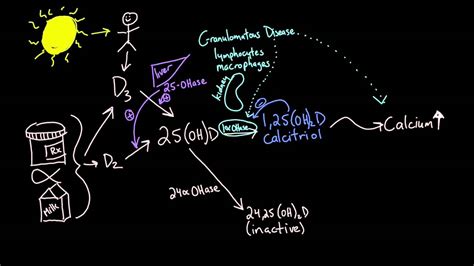 Granulomatous Disease
lymphocytes
macrophages
liver
25-OHase
kidney
D3
Rx
Milk
D2
25(OH)D
1αOHase
1,25(OH)2D
Calcitriol
Calcium↑
24αOHase
24,25(OH)2D
(inactive)